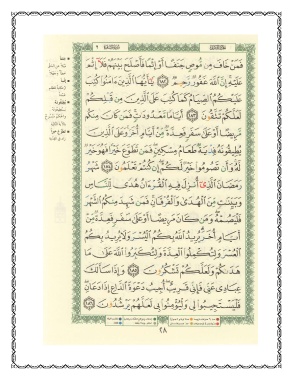 فَمَنْ خَافَ مِن مُّوصٍ جَنَفًا أَوْ إِثْمًا فَأَصْلَحَ بَيْنَهُمْ فَلَآ إِثْمَ
عَلَيْهِ إِنَّ اللَّهَ غَفُورٌ رَّحِيمٌ ١٨٢ يَٰٓأَيُّهَا الَّذِينَ ءَامَنُوا كُتِبَ
عَلَيْكُمُ الصِّيَامُ كَمَا كُتِبَ عَلَى الَّذِينَ مِن قَبْلِكُمْ
لَعَلَّكُمْ تَتَّقُونَ ١٨٣ أَيَّامًا مَّعْدُودَٰتٍ فَمَن كَانَ مِنكُم
مَّرِيضًا أَوْ عَلَىٰ سَفَرٍ فَعِدَّةٌ مِّنْ أَيَّامٍ أُخَرَ وَعَلَى الَّذِينَ
يُطِيقُونَهُۥ فِدْيَةٌ طَعَامُ مِسْكِينٍ فَمَن تَطَوَّعَ خَيْرًا فَهُوَ خَيْرٌ
لَّهُۥ وَأَن تَصُومُوا خَيْرٌ لَّكُمْ إِن كُنتُمْ تَعْلَمُونَ ١٨٤ شَهْرُ
رَمَضَانَ الَّذِىٓ أُنزِلَ فِيهِ الْقُرْءَانُ هُدًى لِّلنَّاسِ
وَبَيِّنَٰتٍ مِّنَ الْهُدَىٰ وَالْفُرْقَانِ فَمَن شَهِدَ مِنكُمُ الشَّهْرَ
فَلْيَصُمْهُ وَمَن كَانَ مَرِيضًا أَوْ عَلَىٰ سَفَرٍ فَعِدَّةٌ مِّنْ
أَيَّامٍ أُخَرَ يُرِيدُ اللَّهُ بِكُمُ الْيُسْرَ وَلَا يُرِيدُ بِكُمُ
الْعُسْرَ وَلِتُكْمِلُوا الْعِدَّةَ وَلِتُكَبِّرُوا اللَّهَ عَلَىٰ مَا
هَدَىٰكُمْ وَلَعَلَّكُمْ تَشْكُرُونَ ١٨٥ وَإِذَا سَأَلَكَ
عِبَادِى عَنِّى فَإِنِّى قَرِيبٌ أُجِيبُ دَعْوَةَ الدَّاعِ إِذَا دَعَانِ
فَلْيَسْتَجِيبُوا لِى وَلْيُؤْمِنُوا بِى لَعَلَّهُمْ يَرْشُدُونَ ١٨٦
٢٨